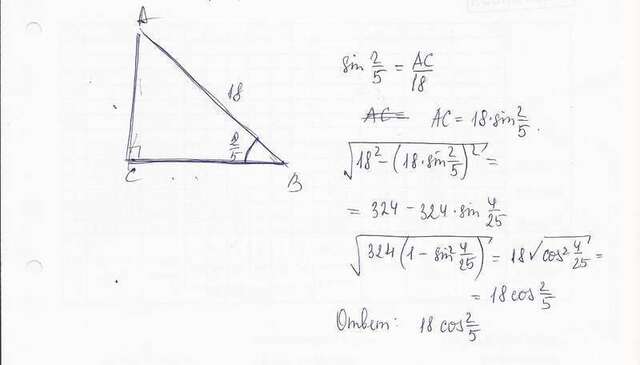 A
18
2/5
C
B
sin 2/5 = AC/18
AC = AC = 18·sin 2/5
√(18² − (18·sin 2/5)²) =
= 324 − 324·sin 4/25
√(324(1 − sin² 4/25)) = 18√(cos² 4/25) =
= 18 cos 2/5
Ответ: 18 cos 2/5